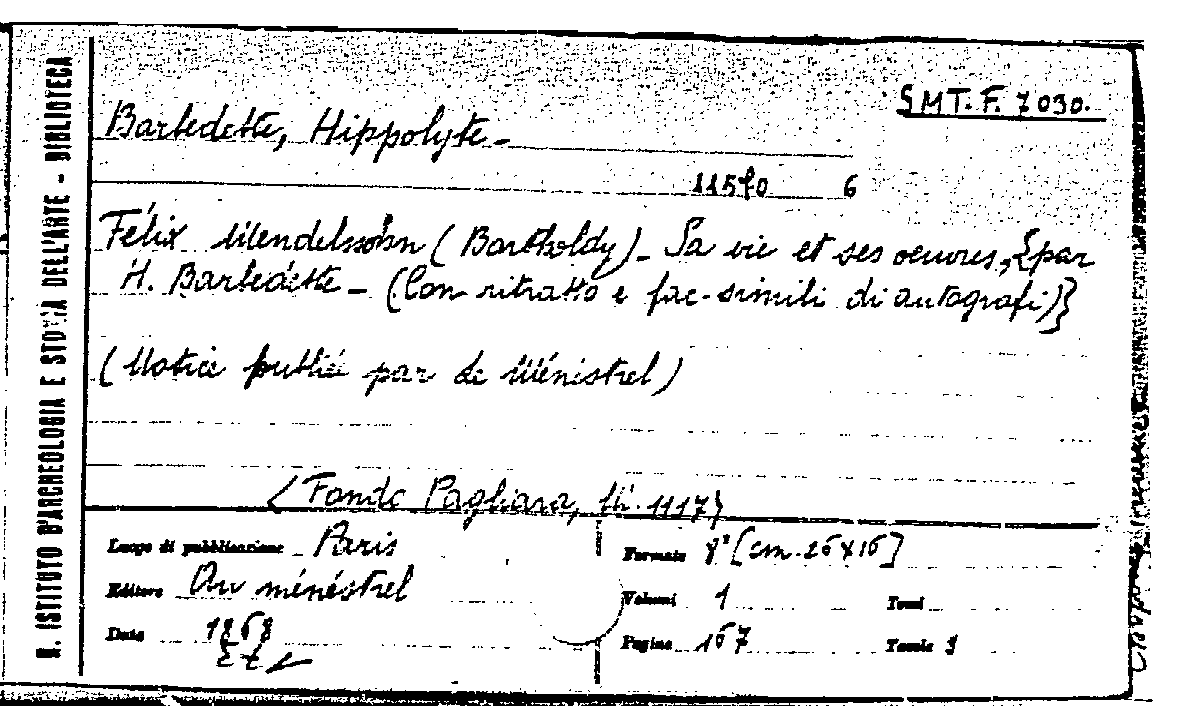 R. ISTITUTO D'ARCHEOLOGIA E STORIA DELL'ARTE - BIBLIOTECA
SMT. F. 7030.
Barbedette, Hippolyte -
11570 6
Félix Mendelssohn (Bartholdy) - Sa vie et ses oeuvres, {par
H. Barbedette - (Con ritratto e fac-simili di autografi)}
(Notice publiée par Le Ménestrel)
(Fondo Pagliara, N. 1117)
Luogo di pubblicazione Paris
Formato 8° [cm. 26x16]
Editore Au ménéstrel
Volumi 1 Tomi
Data 1868
Pagine 167 Tavole 1